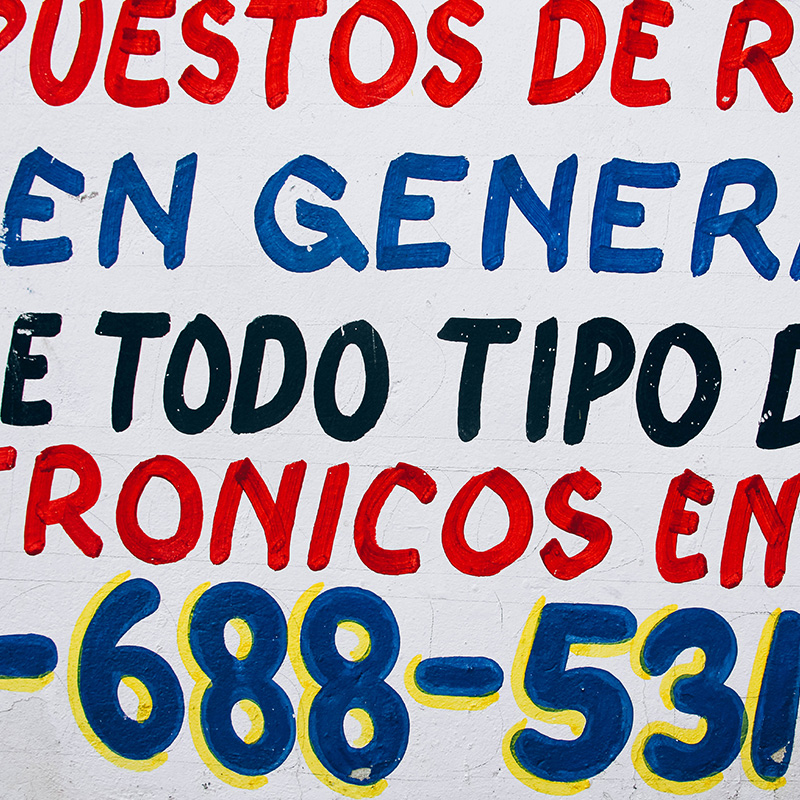 PUESTOS DE R
EN GENERA
E TODO TIPO D
TRONICOS EN
-688-531